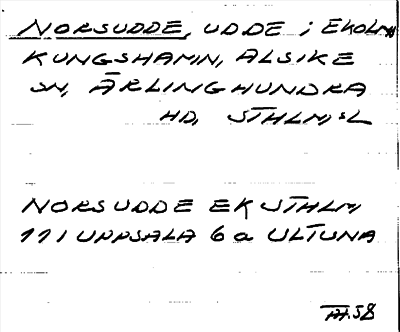 NORSUDDE, UDDE i EKOLN
KUNGSHAMN, ALSIKE
SN, ÄRLINGHUNDRA
HD, STHLMS L
NORSUDDE EK STHLM
11 I UPPSALA 6 a ULTUNA